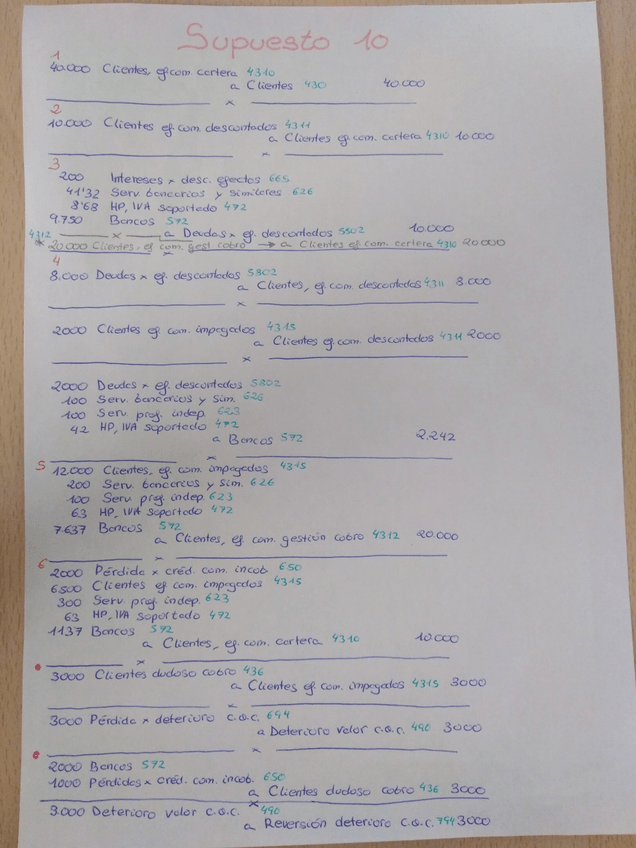 Supuesto 10
1
40.000 Clientes, ef com cartera 4310
a Clientes 430 40.000
x
2
10.000 Clientes ef com. descontados 4311
a Clientes ef. com. cartera 4310 10.000
x
3
200 Intereses x desc. efectos 665
41'32 Serv. bancarios y similares 626
8'68 HP, IVA soportado 472
9.750 Bancos 572
x a Deudas x ef. descontados 5802 10.000
4312
* 20.000 Clientes, ef com. gest cobro → a Clientes ef com. cartera 4310 20.000
x
4
8.000 Deudas x ef. descontados 5802
a Clientes, ef com. descontados 4311 8.000
x
2000 Clientes ef com. impagados 4315
a Clientes ef.com. descontados 4311 2000
x
2000 Deudas x ef. descontados 5802
100 Serv. bancarios y sim. 626
100 Serv. prof. indep. 623
42 HP, IVA soportado 472
a Bancos 572 2.242
x
5 12.000 Clientes, ef. com. impagados 4315
200 Serv. bancarios y sim. 626
100 Serv prof. indep. 623
63 HP, IVA soportado 472
7.637 Bancos 572
a Clientes, ef. com. gestión cobro 4312 20.000
x
6 2000 Pérdida x créd. com. incob. 650
6500 Clientes ef com. impagados 4315
300 Serv. prof. indep. 623
63 HP, IVA soportado 472
1137 Bancos 572
a Clientes, ef. com. cartera 4310 10.000
x
3000 Clientes dudoso cobro 436
a Clientes ef. com. impagados 4315 3000
x
3000 Pérdida x deterioro c.o.c. 694
a Deterioro valor c.o.c. 490 3000
x
2000 Bancos 572
1000 Pérdidas x créd. com. incob. 650
a Clientes dudoso cobro 436 3000
x
3.000 Deterioro valor c.o.c. 490
a Reversión deterioro c.o.c. 794 3000